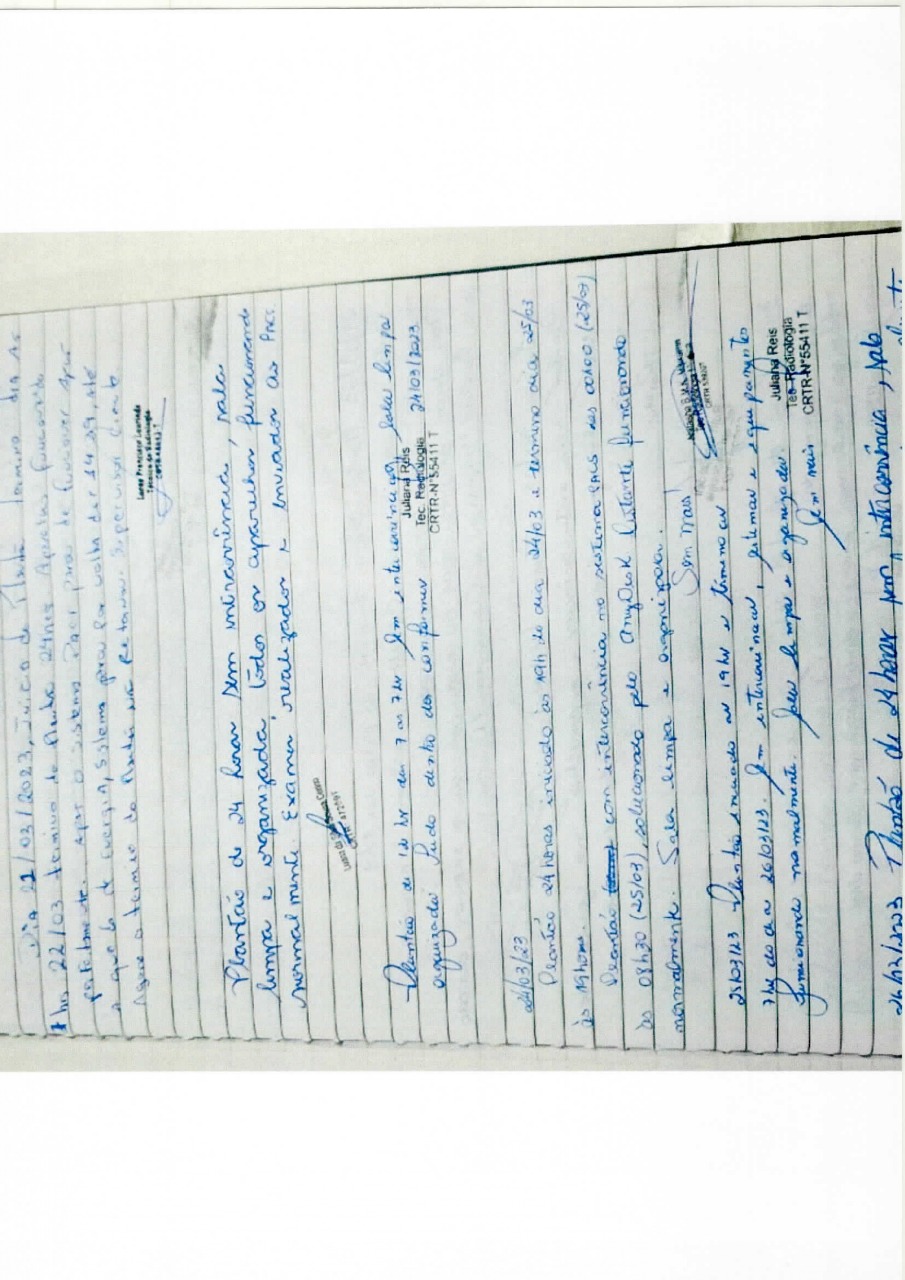 Dia 21/03/2023, Inicio de Plantão termino dia As
7hrs 22/03 termino de Plantão 24hrs Aparelhos funcionando
Perfeitamente. Apos o sistema Pacs para de funcionar Apos
A queda de energia, sistema parou por volta das 14:39, Até
Agora o termino do Plantão não Retornou. Supervisor ciente
Técnico de Radiologia
Plantão de 24 horas sem intercorrência, sala
limpa e organizada todos os aparelhos funcionando
normalmente. Exames realizados e enviados ao PACS.
Plantão de 12 hs das 7 as 7hs Sem intercorrências, Sala limpa
organizada. Tudo dentro dos conformes 24/03/2023.
Juliana Reis
Tec. Radiologia
CRTR-Nº55411 T
24/03/23
Plantão 24 horas iniciado às 19h do dia 24/03 e termino dia 25/03
às 19horas.
Plantão com intercorrência no sistema PACS das 00h00 (25/03)
às 08h30 (25/03), solucionado pelo Bastante funcionando
normalmente. Sala limpa e organizada.
Sem mais!
25/03/23 Plantão iniciado as 19 hs e término as
7hs do dia 26/03/23. Sem intercorrências, sistemas e equipamentos
funcionando normalmente. Sala limpa e organizada.
Sem mais
Juliana Reis
Tec. Radiologia
CRTR-Nº55411 T
Plantão de 24 horas sem intercorrência, sala